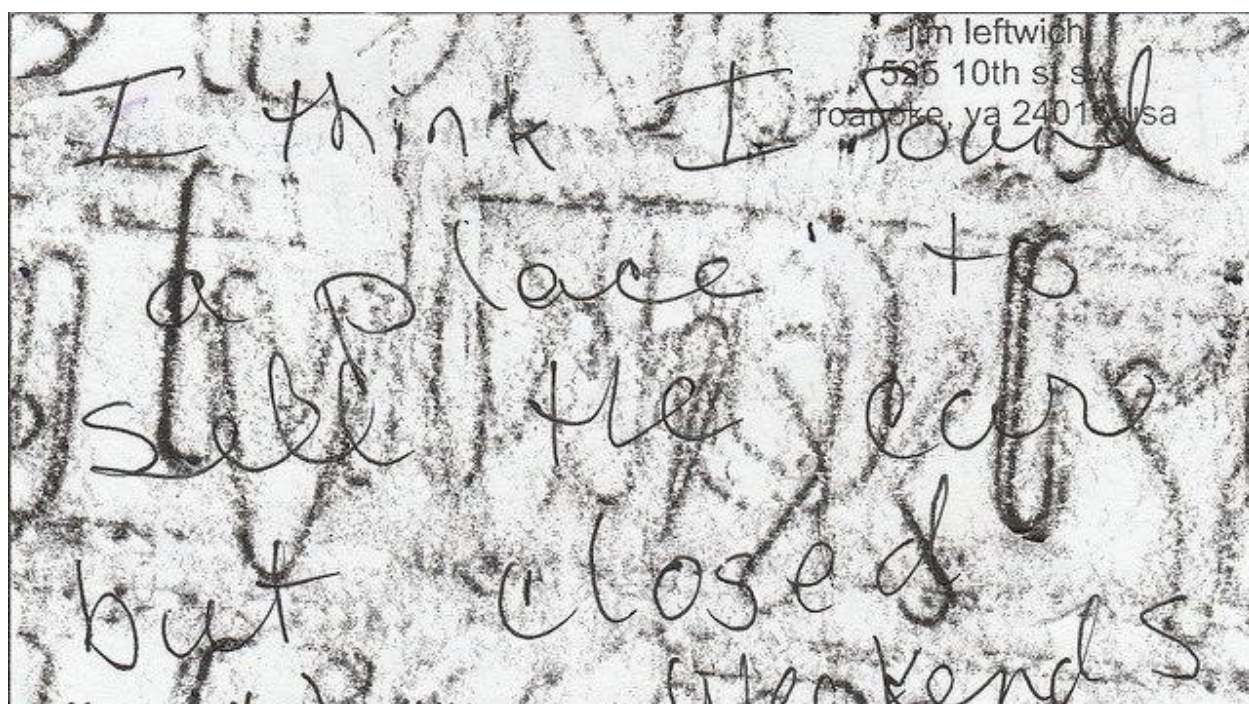 jim leftwich
525 10th st sw
roanoke, va 24016 usa
I think I found
a place to
sell the
but closed
weekends